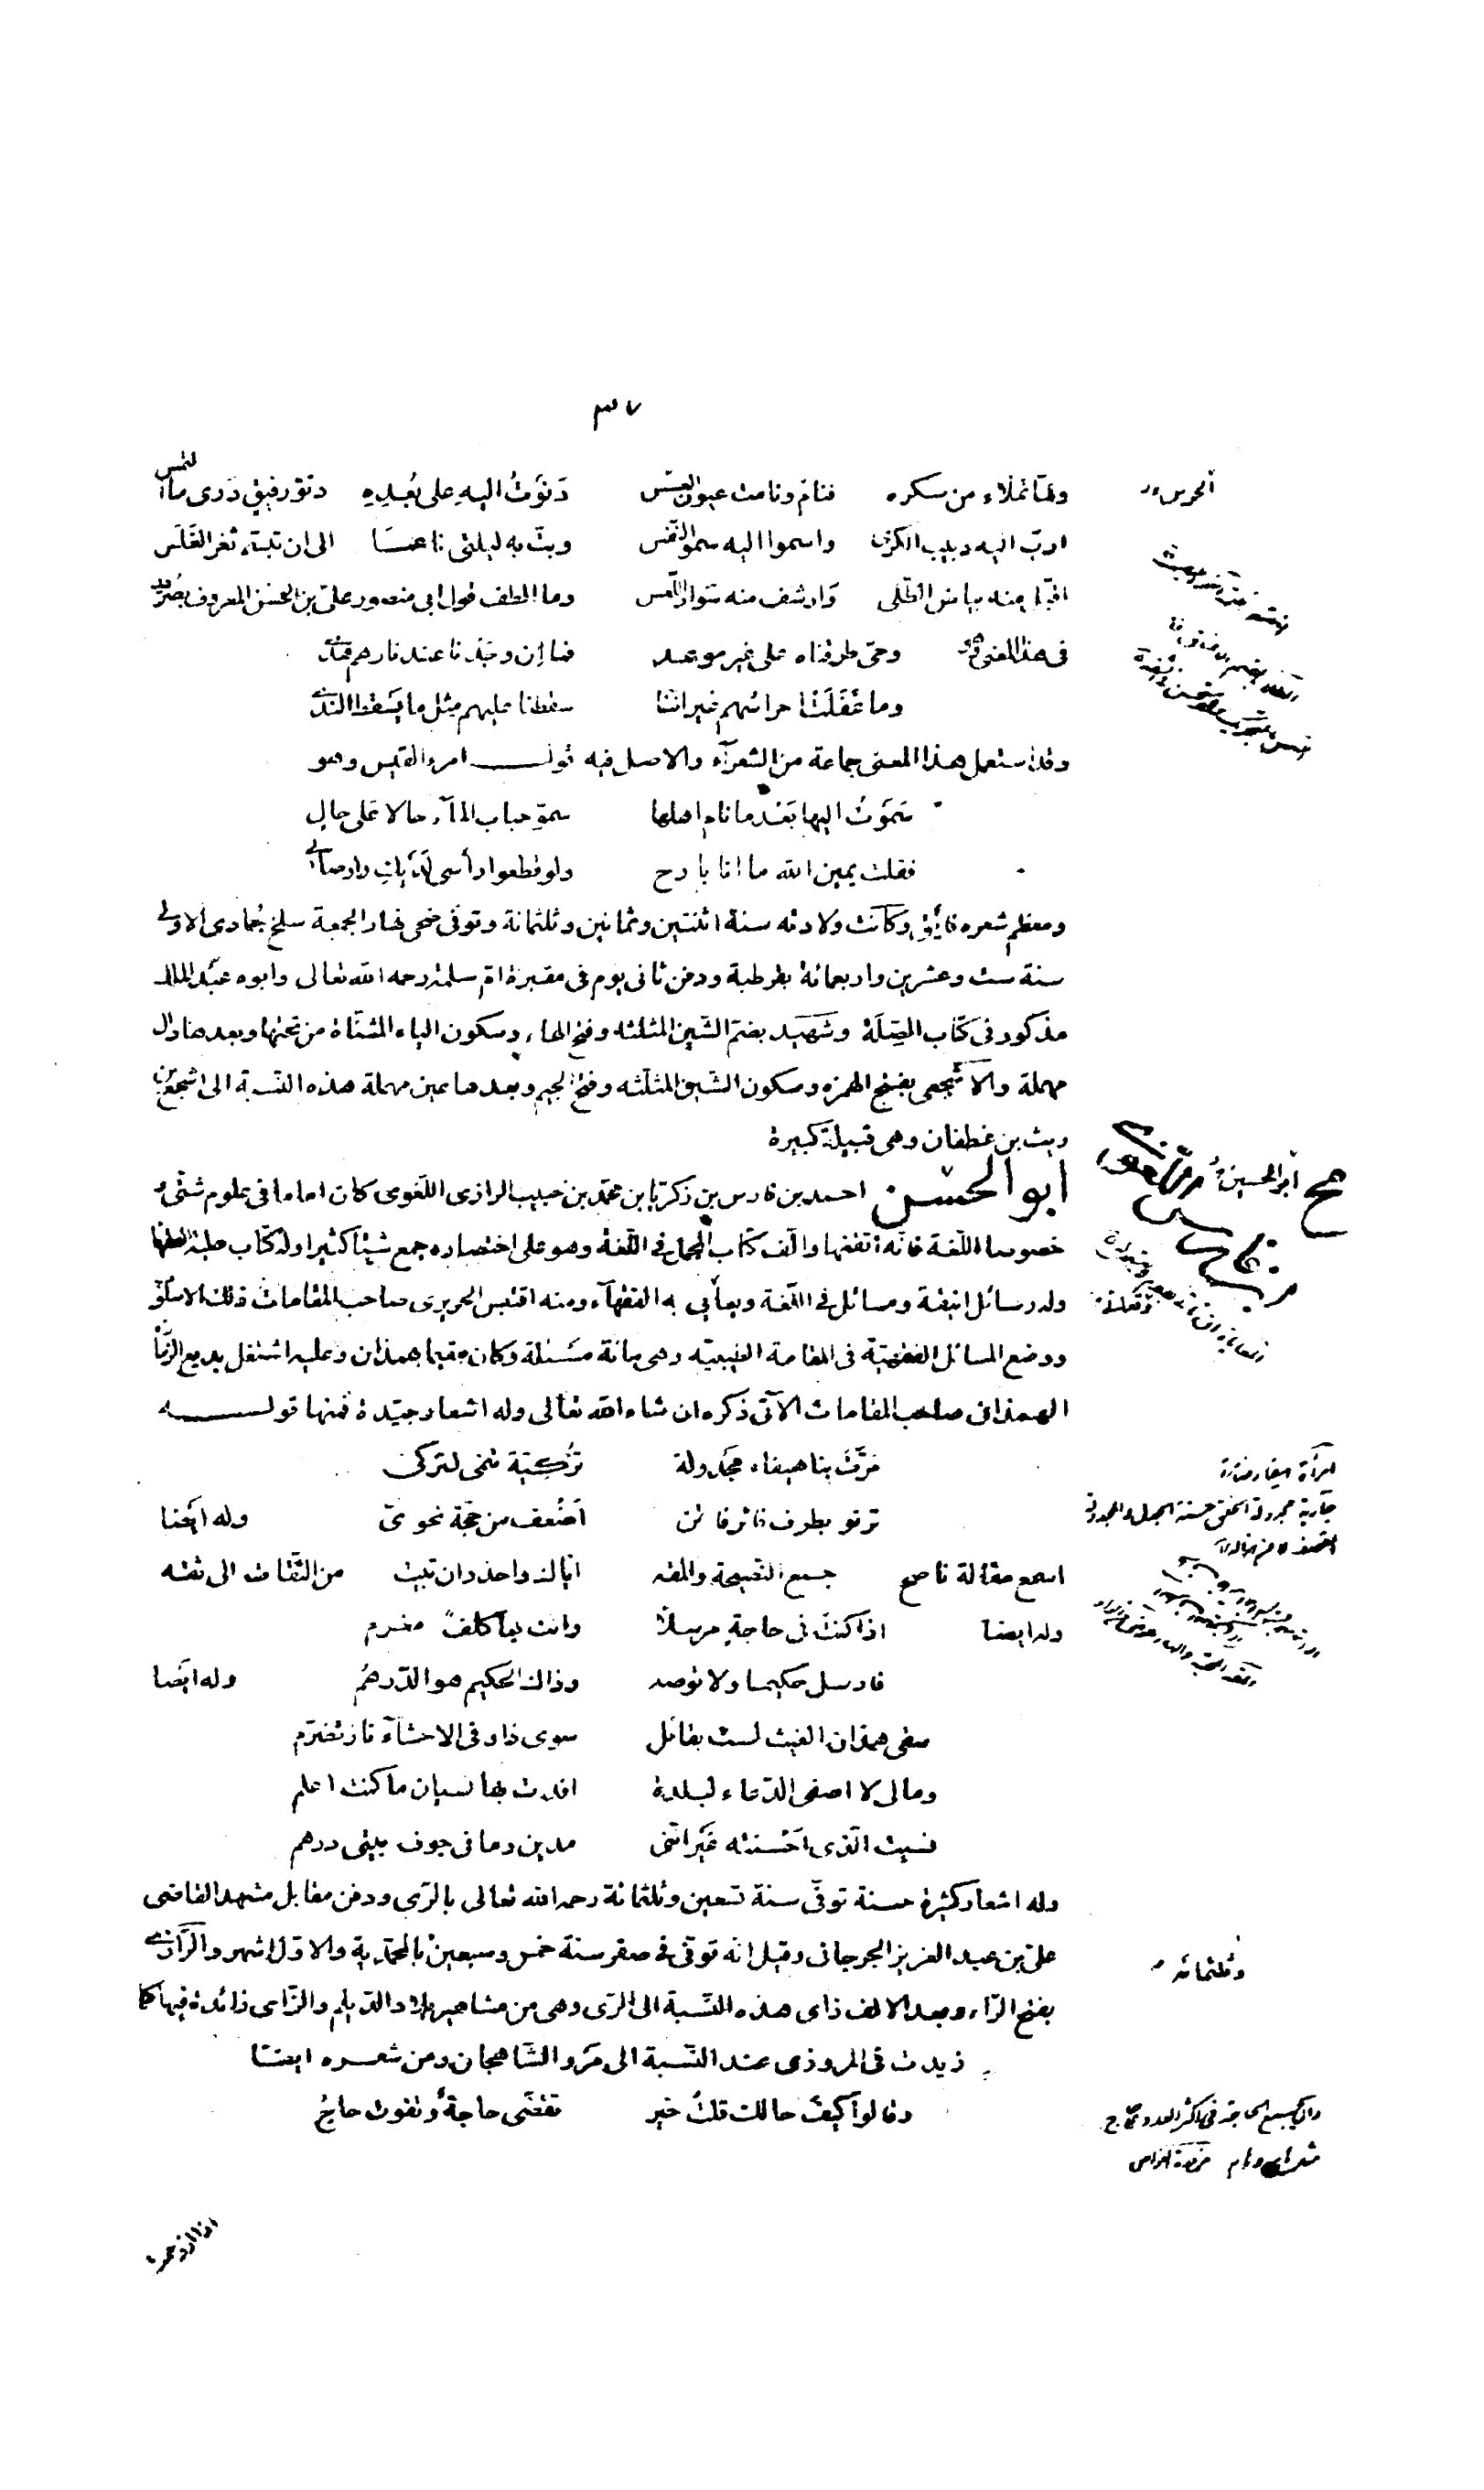 ٣٧
ولما تملاء من سكره فنام ونامت عيون العسس دَنَوْتُ اليهِ على بُعْدِهِ دنوّ رفيق دَرى ما التمس
ادبّ اليه دبيب الكرى واسموا اليه سموّ النّفس وبتّ به ليلتي ناعمًا الى ان تبسّم ثغر الغَلَس
اقبّل منه بياض الطّلى وَارشف منه سَواد اللّعس وما الطف قول ابى منصور علىّ بن الحسن المعروف بصُرّدر
فى هذا المعنى وهو وحىّ طرقناه على غير موعد فما اِن وجَدْنا عند نارهم هدى
وما غَفَلَتْ حراسهم غير اننا سقطنا عليهم مثل ما يَسْقط الندى
وقد استعمل هذا المعنى جماعة من الشعرآء والاصل فيه قول امرء القيس وهو
سَمَوْتُ اليها بَعْد ما نام اهلها سموّ حباب المآء حالا عَلى حال
فقلت يمين الله ما انا بارح ولو قطعوا رأسى لَدَيْكِ واوصالى
ومعظم شعره فائق وكانت ولادته سنة اثنتين وثمانين وثلثمائة وتوفى ضحى نهار الجمعة سلخ جُمادى الاولى
سنة ست وعشرين واربعمائة بقرطبة ودفن ثانى يوم فى مقبرة امّ سلمة رحمه الله تعالى وابوه عبد الملك
مذكور فى كتاب الصِلَة وشُهَيد بضمّ الشّين المثلثه وفتح الهاء وسكون الياء المثنّاة من تحتها وبعدها دال
مهملة والاَشْجعى بفتح الهمزه وسكون الشين المثلّثه وفتح الجيم وبعدها عين مهملة هذه النسبة الى اشجع بن
ريث بن غطفان وهى قبيلة كبيرة
ابو الحسين احمد بن فارس بن زكريّا بن محمّد بن حبيب الرازى اللّغوى كان اماما فى علوم شتّى
خصوصا اللّغة فانّه اتقنها والّف كتاب المجمل فى اللّغة وهو على اختصاره جمع شيئا كثيرا وله كتاب حلية الفقهاء
وله رسائل انيقة ومسائل فى اللّغة ويعايى به الفقهآء ومنه اقتبس الحريرى صاحب المقامات ذلك الاسلوب
ووضع المسائل الفقهيّة فى المقامة الطيبيّه وهى مائة مَسْئلة وكان مقيما بهمذان وعليه اشتغل بديع الزّمان
الهمذانى صاحب المقامات الآتى ذكره ان شاء الله تعالى وله اشعار جيّدة فمنها قوله
مَرَّتْ بنا هيفاء مجَدولة تُركيّة تنمى لتركى
ترنو بطرف فاتر فاتن اَضْعف من حجّة نحوىّ وله ايضا
اسمع مقالة ناصح جمع النصيحة والمقه ايّاك واحذر ان تبيت من الثّقات الى ثقه
وله ايضا اذا كنتَ فى حاجةٍ مرسلاً وانت بها كلفٌ مغرم
فارسل حكيما ولا توصه وذاك الحكيم هو الدّرهمُ وله ايَضا
سقى همذان الغيث لست بقائل سوى ذا وفى الاحشآء نار تضرّم
ومالى لا اصفى الدّعاء لبلدة افدت بها نسيان ما كنت اعلم
نسيت الّذى احْسنته غَيْر اننى مدين وما فى جوف بيتى درهم
وله اشعار كثيرة حسنة توفّى سنة تسعين وثلثمائة رحمه الله تعالى بالرّى ودفن مقابل مشهد القاضى
علىّ بن عبد العزيز الجرجانى وقيل انّه توفّى فى صفر سنة خمس وسبعين بالمحمّدية والاوّل اشهر والرَّازى
بفتح الرّاء وبعد الالف زاى هذه النّسبة الى الرّى وهى من مشاهير بلاد الدّيلم والزّاى زائدة فيها كما
زيدت فى المروذى عند النّسبة الى مَرو الشّاهجان ومن شعره ايضا
وقالوا كيفَ حالك قلتُ خير تقضّى حاجةٌ وتفوت حاجُ
الحرس
صح ابو الحسين
امرأة هيفاء ضامرة
جارية مجدولة الخلق حسنة الجدل
وثلثمائه